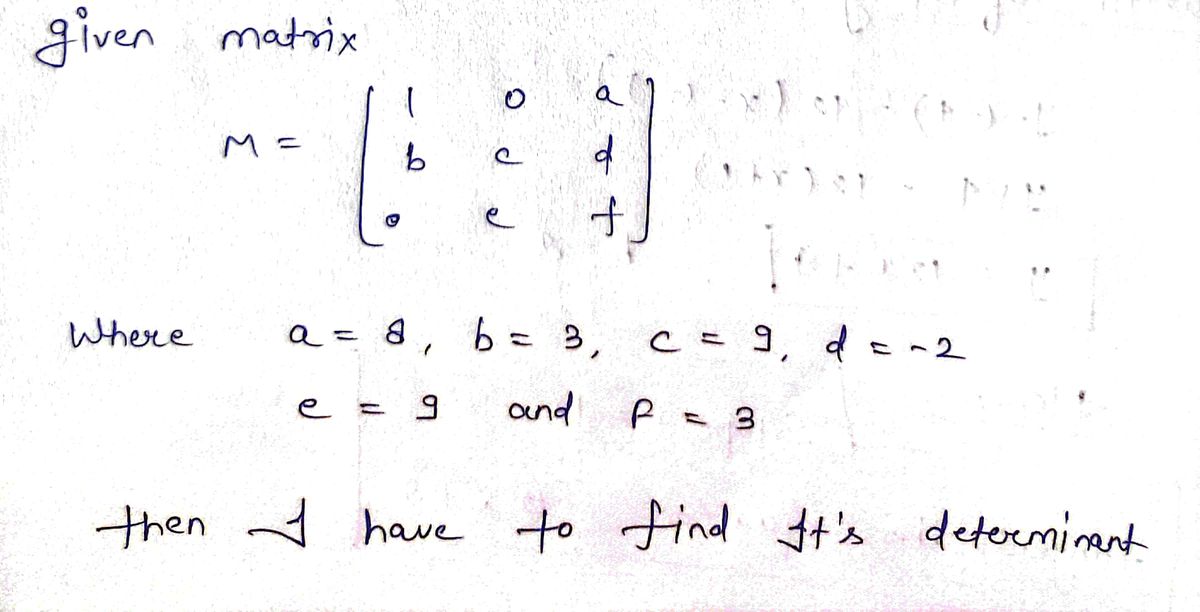 given matrix
M = [ 1 0 a
b c d
0 e f ]
Where a = 8, b = 3, c = 9, d = -2
e = 9 and f = 3
then I have to find It's determinant